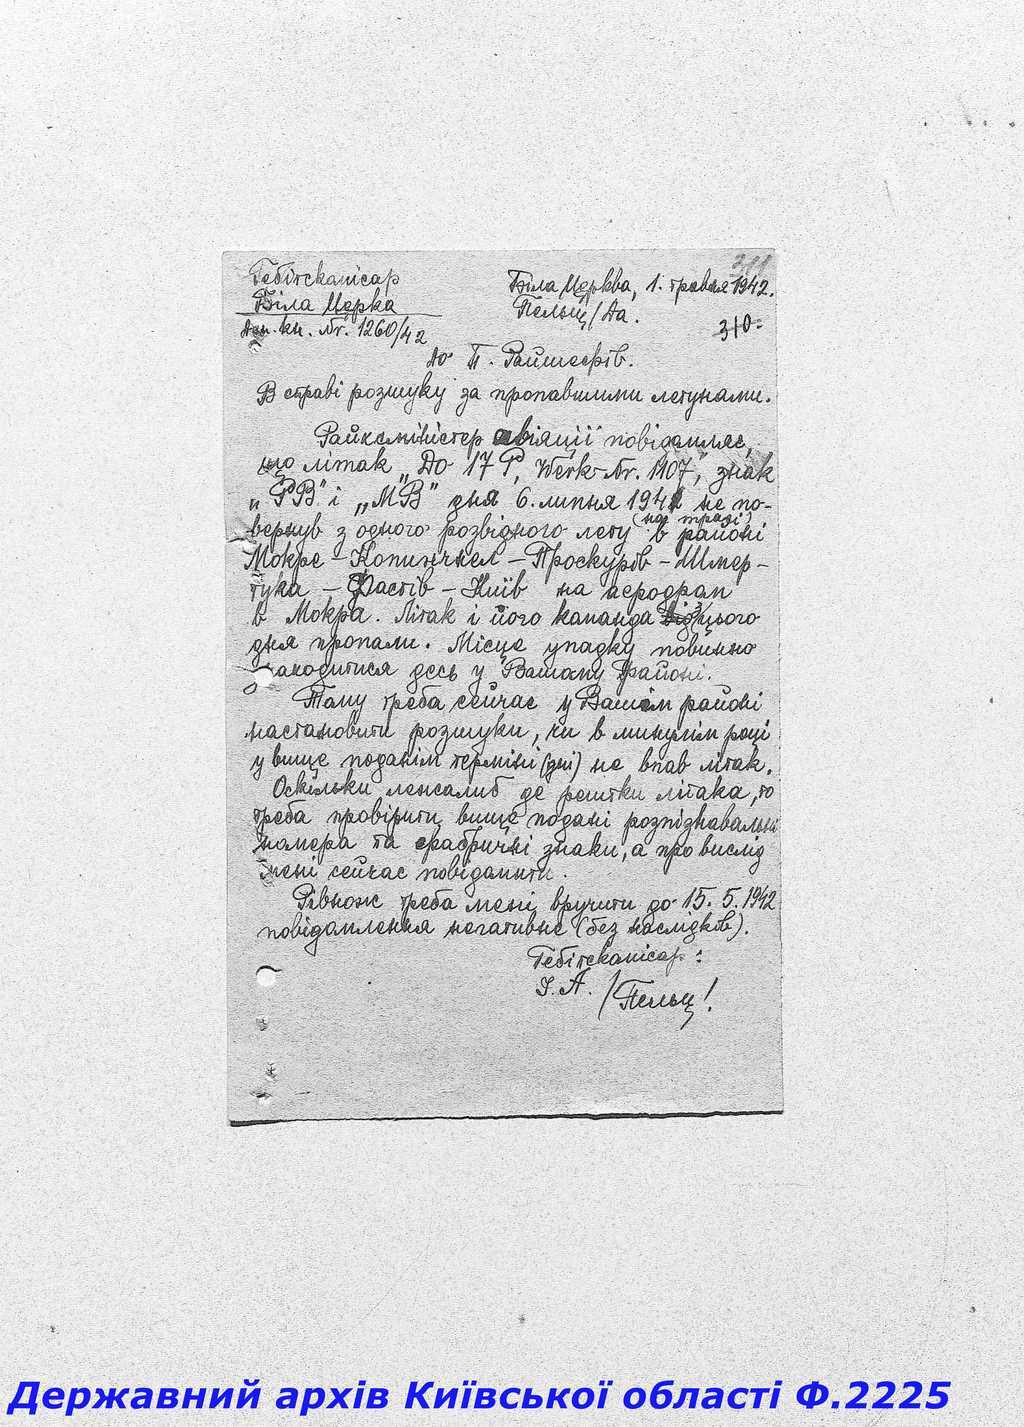 311
Гебітскомісар
Біла Церква, 1. травня 1942.
Біла Церка
Пельц/Да.
Дн. кн. Nr. 1260/42
310.
до П. Райшефів.
В справі розшуку за пропавшими летунами.
Райхсміністер авіяції повідомляє,
що літак „До 17 Р, Werk-Nr. 1107", знак
„РВ" і „МВ" дня 6. липня 1941 не по-
(на трасі)
вернув з одного розвідного лету в районі
Мокре – – Проскурів – Шмер-
– Фастів – Київ на аеродром
в Мокра. Літак і його команда від цього
дня пропали. Місце упадку повинно
знаходитися десь у Вашому районі.
Тому треба сейчас у Вашім районі
настановити розшуки, чи в минулім році
у вище поданім терміні (дні) не впав літак.
Оскільки де рештки літака, то
треба провірити вище подані розпізнавальні
номера та фабричні знаки, а про вислід
мені сейчас повідомити.
Рівнож треба мені вручити до 15. 5. 1942
повідомлення негативне (без наслідків).
Гебітскомісар:
І. А. /Пельц!
Державний архів Київської області Ф.2225